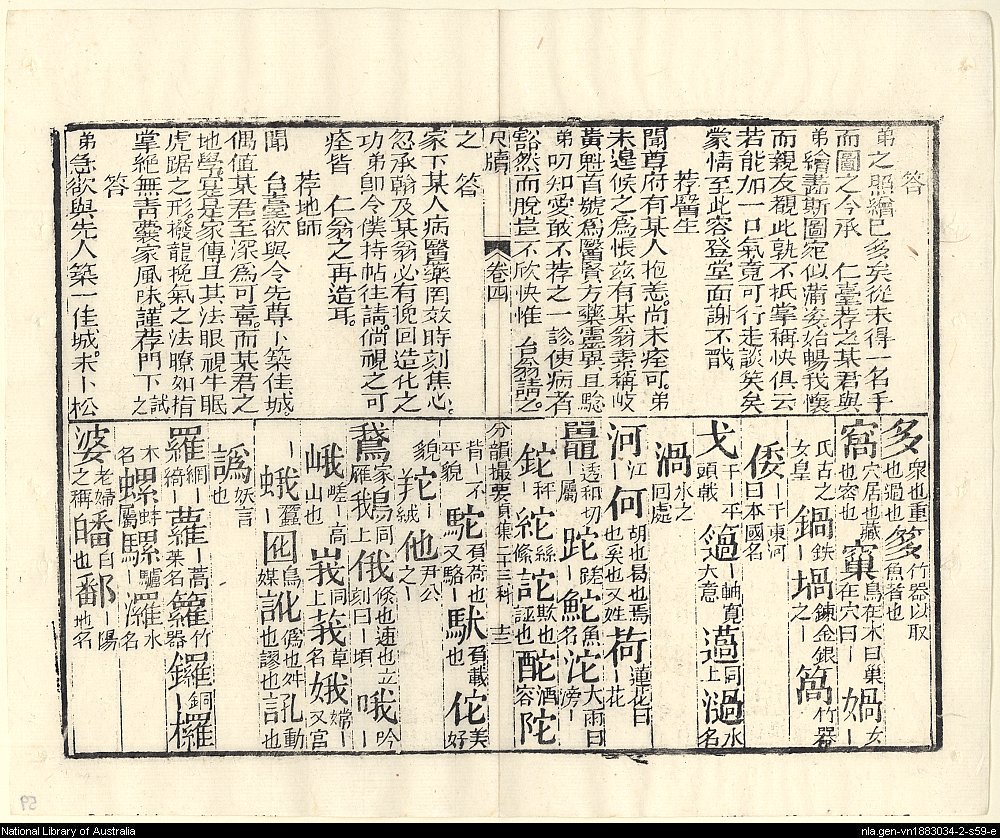 答
弟之照繪已多矣從未得一名手
而圖之今承　仁臺荐之某君與
弟繪畵斯圖宛似蒲姿始暢我懷
而親友觀此孰不抵掌稱快俱云
若能加一口氣竟可行走談矣矣
蒙情至此容登堂面謝不戩
荐醫生
聞尊府有某人抱恙尚未痊可弟
未遑候之爲悵玆有某翁素稱岐
黃魁首號爲醫賢方藥靈異且騐
弟叨知愛敢不荐之一診使病者
豁然而脫豈不欣快惟　台翁請之
尺牘　卷四
之　答
家下某人病醫藥罔效時刻焦心
忽承翰及某翁必有挽回造化之
功弟卽令僕持帖往請倘視之可
痊皆　仁翁之再造耳
荐地師
聞　台臺欲與令先尊卜築佳城
偶值某君至深爲可喜而某君之
地學寔是家傳且其法眼視牛眠
虎踞之形龍挽氣之法瞭如指
掌絕無靑囊家風味謹荐門下試之
答
弟急欲與先人築一佳城未卜松
多衆也重也過也 竹器以取魚者也
窩穴居也藏也窓也 窠鳥在木曰巢在穴曰｜ 媧女｜
氏古之女皇 鍋鉄｜ 堝鍊金銀之｜ 窩竹器
倭｜于東河日本國名
戈干｜平頭戟 薖｜軸寬大意 邁同上 濄水名
渦水之回處
河江｜ 何胡也曷也焉也矣也又姓 荷蓮花曰｜花
鼉透和切｜屬 跎蹉｜ 鮀魚名 沱大雨曰滂｜
鉈秤｜ 紽絲條 詑欺也誣也 酡酒容 陀
分韻撮要貞集　二十三科　十三
皆｜不平貌 駝負荷也又駱｜ 馱負載也 佗美好
貌 㐌｜羊羢 他尹公之｜
鵞家｜雁 鵝同上 俄條也速也立刻曰｜頃 哦吟｜
峨嵯｜高山也 峩同上 莪草名 娥嫦｜又宮
｜ 蛾蠶｜ 囮鳥媒 訛僞也舛也謬也言也 吪動也
譌妖言也
羅綱｜綺｜ 蘿｜蒿菜名 籮竹器 鑼銅｜ 欏
木名 螺蚌屬 騾驢｜ 㶅水名
婆老婦之稱 皤白也 鄱｜陽地名
59
National Library of Australia
nla.gen-vn1883034-2-s59-e